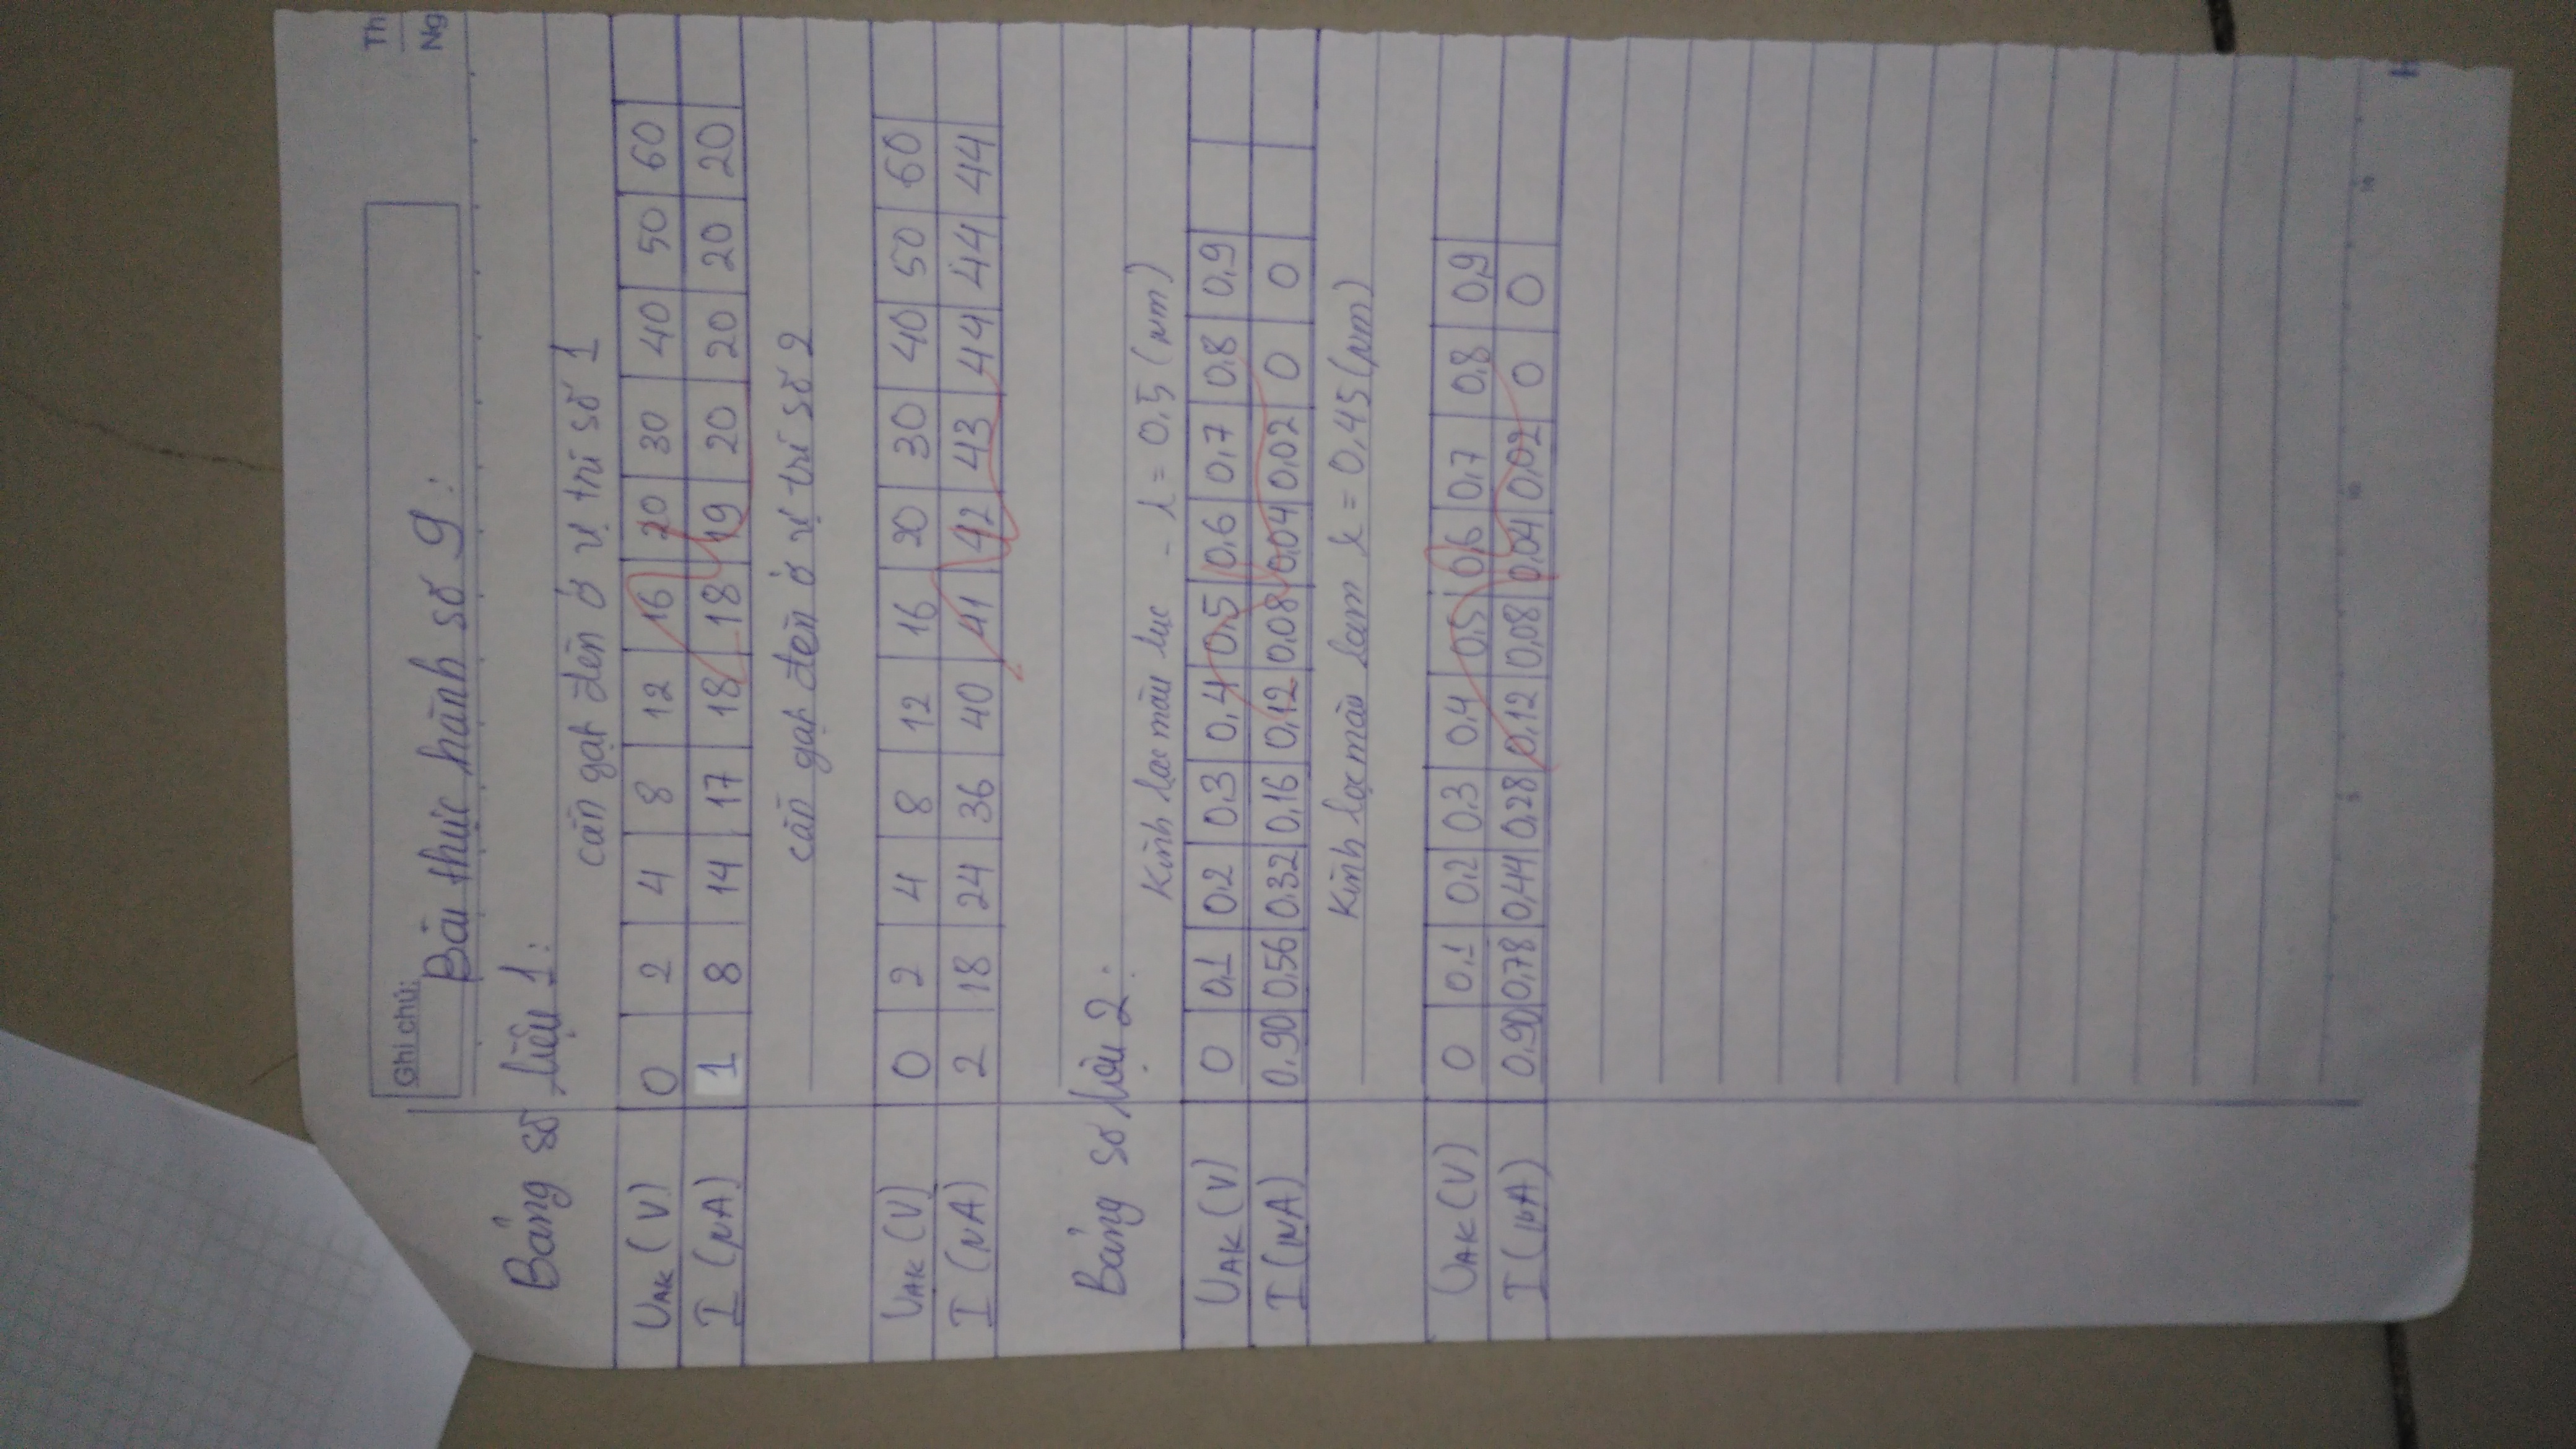 Th
Ghi chú:
Ng
Bài thực hành số 9:
Bảng số liệu 1:
cần gạt đèn ở vị trí số 1
UAK (V) 0 2 4 8 12 16 20 30 40 50 60
I (μA) 1 8 14 17 18 18 19 20 20 20 20
cần gạt đèn ở vị trí số 2
UAK (V) 0 2 4 8 12 16 20 30 40 50 60
I (μA) 2 18 24 36 40 41 42 43 44 44 44
Bảng số liệu 2:
Kính lọc màu lục - λ = 0,5 (μm)
UAK (V) 0 0,1 0,2 0,3 0,4 0,5 0,6 0,7 0,8 0,9
I (μA) 0,90 0,56 0,32 0,16 0,12 0,08 0,04 0,02 0 0
Kính lọc màu lam λ = 0,45 (μm)
UAK (V) 0 0,1 0,2 0,3 0,4 0,5 0,6 0,7 0,8 0,9
I (μA) 0,90 0,78 0,44 0,28 0,12 0,08 0,04 0,02 0 0
5 10
H